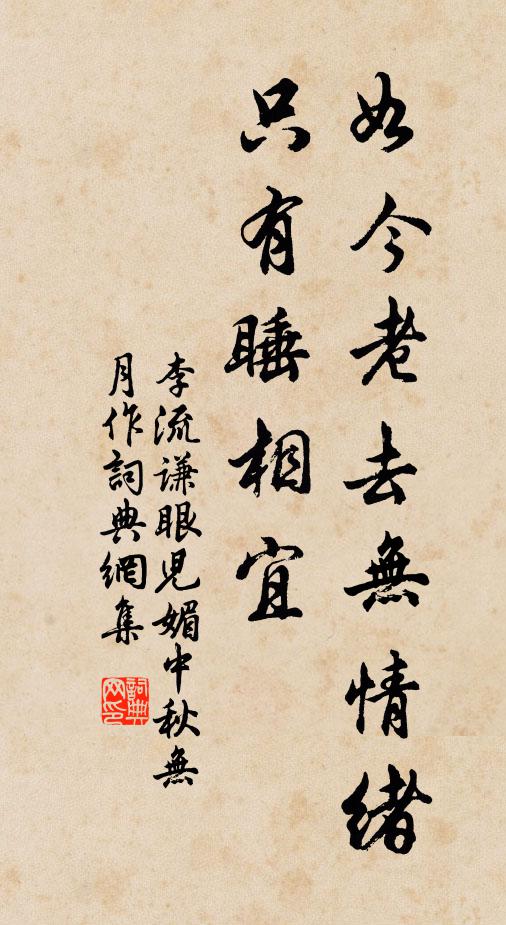 如今老去無情緒
只有睡相宜
李流谦眼児媚中秋無
月作詞典網集
詞典
网印